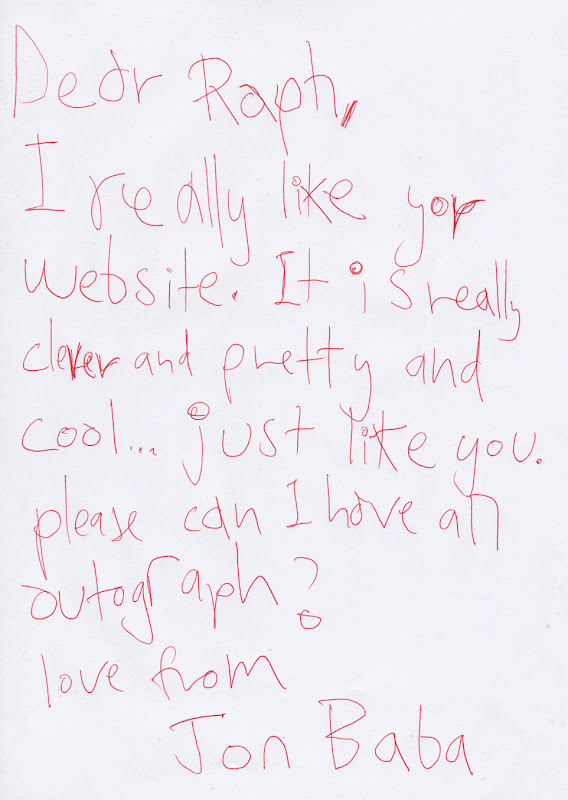 Dear Raph,
I really like yor
website. It is really
clever and pretty and
cool... just like you.
please can I have an
autograph?
love from
Jon Baba